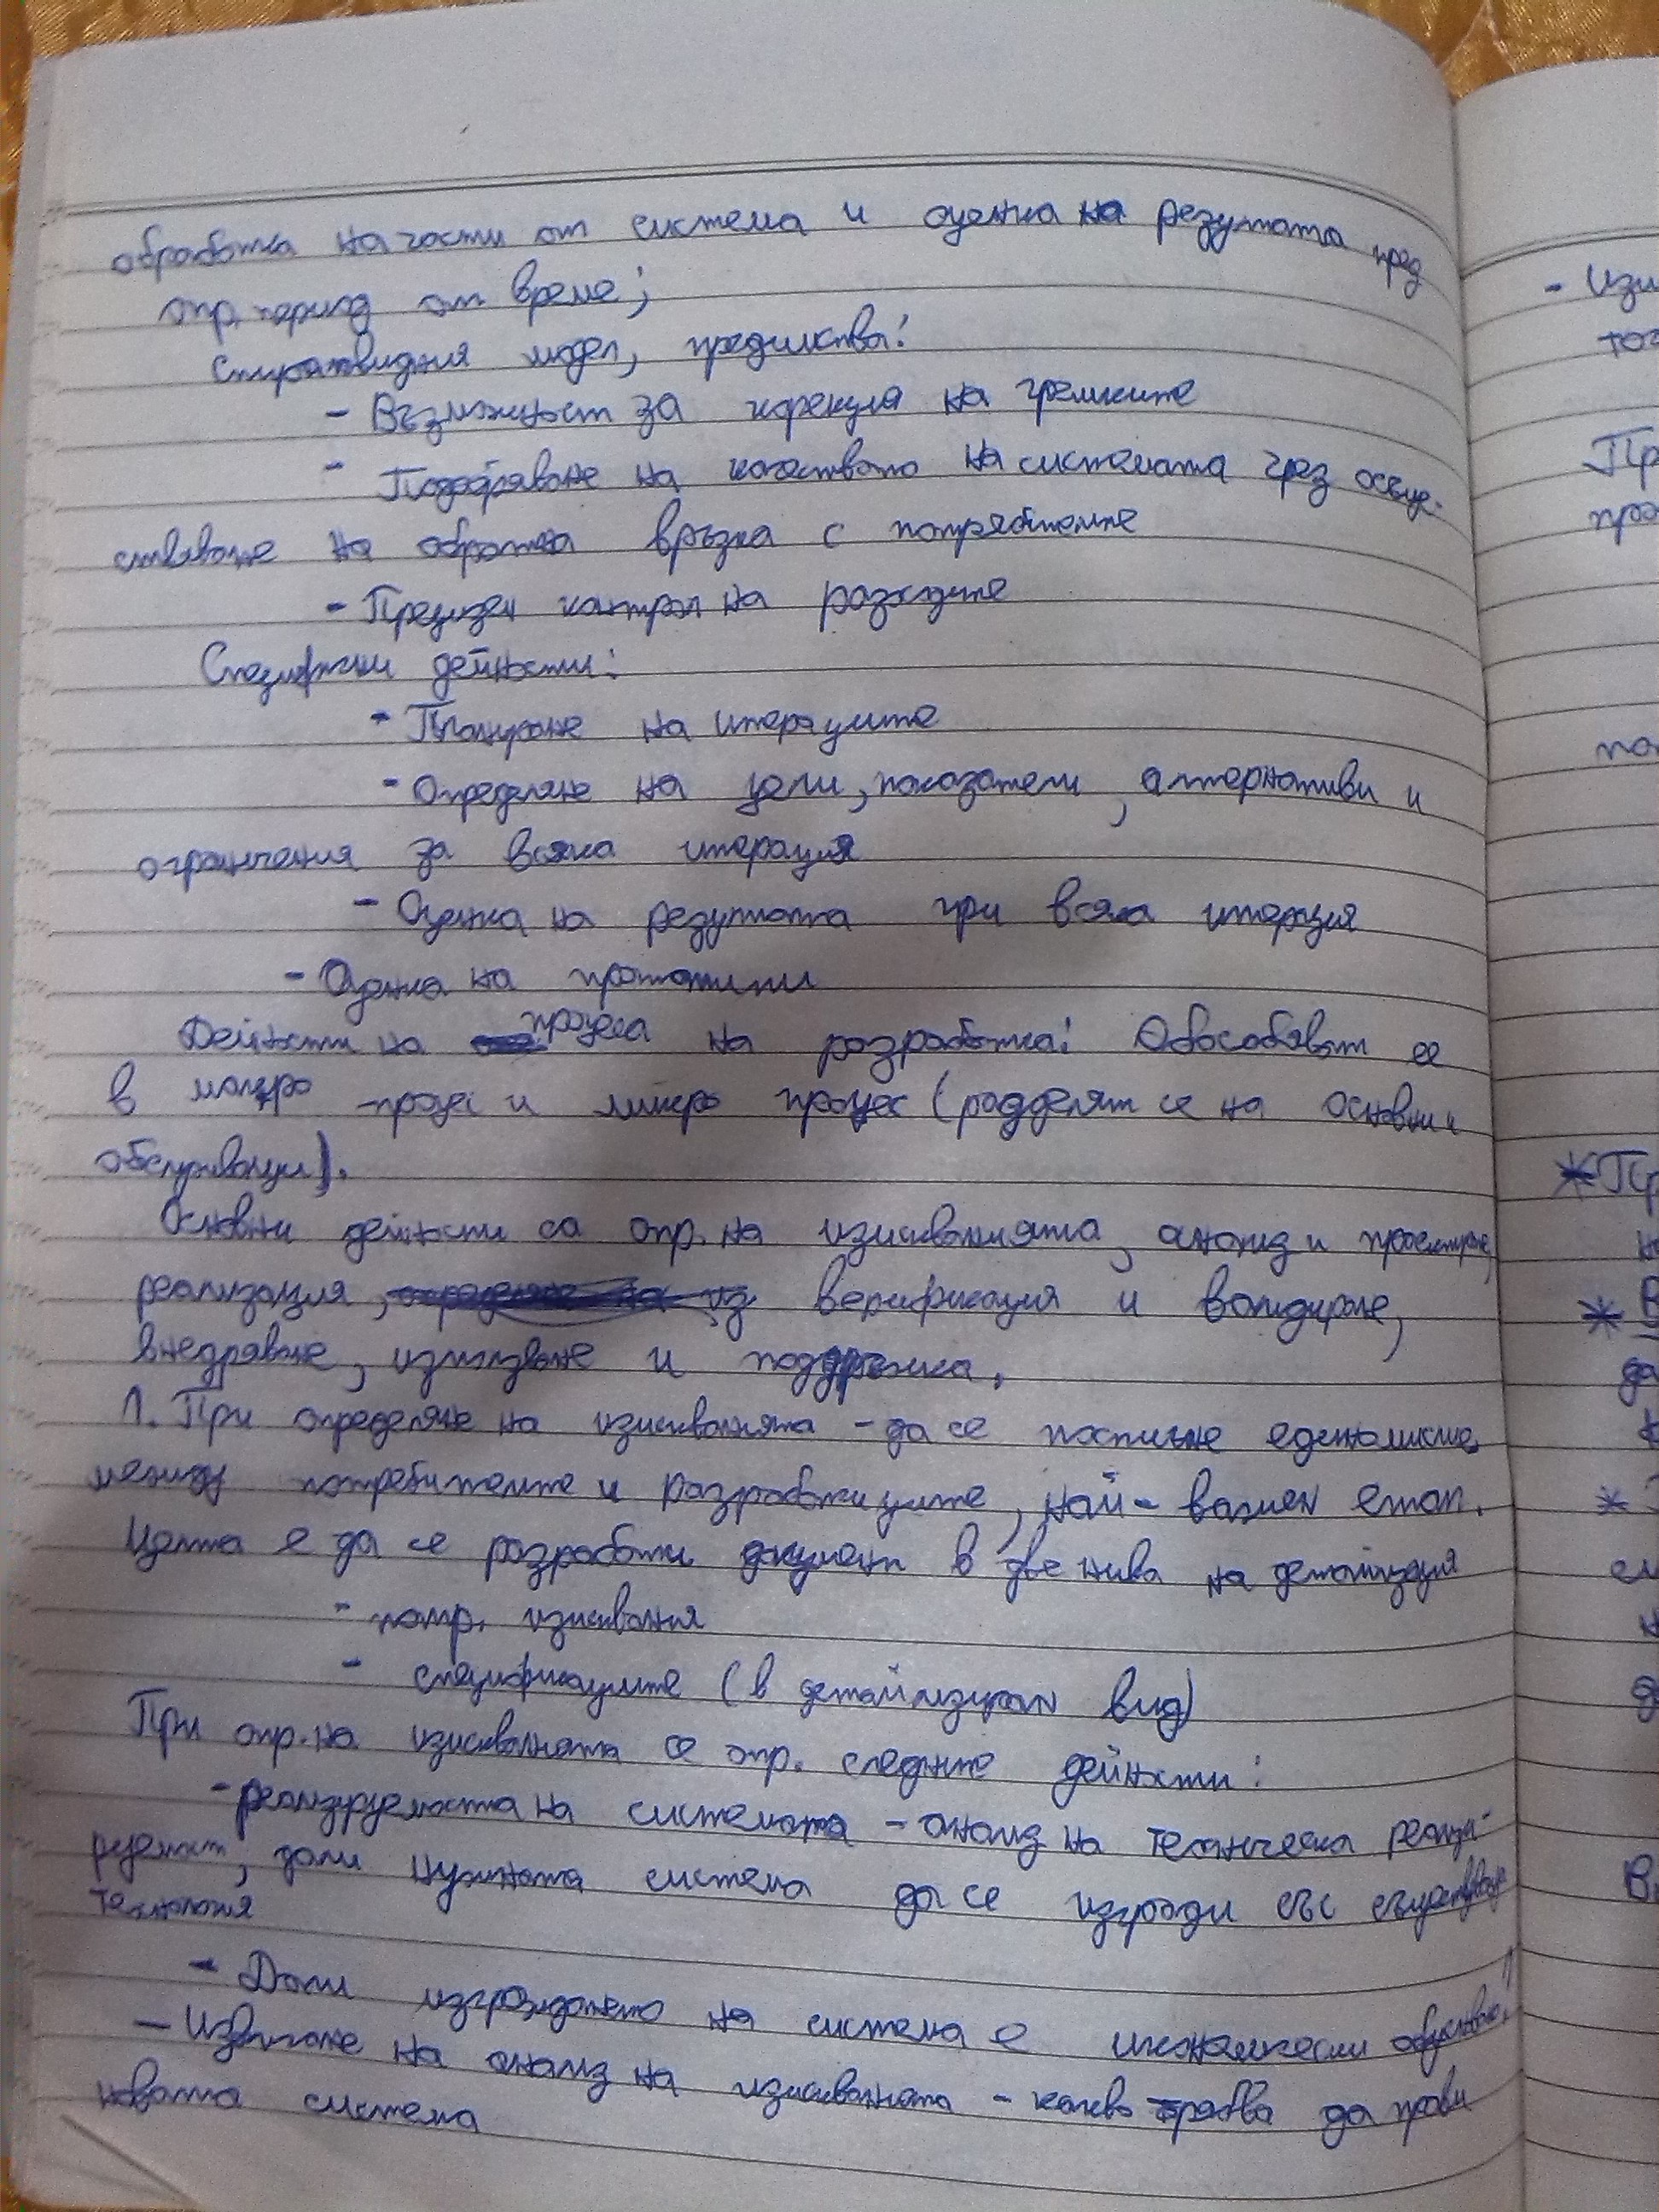 обработка на части от система и оценка на резултата пред
опр. период от време;
Спираловидния модел, предимства:
- Възможност за корекция на грешките
- Подобряване на качеството на системата чрез осъще-
ствяване на обратна връзка с потребителите
- Прецизен контрол на разходите
Специфични дейности:
- Планиране на итерациите
- Определяне на цели, показатели, алтернативи и
ограничения за всяка итерация
- Оценка на резултата при всяка итерация
- Оценка на прототипи
Дейности на процеса на разработка: Обособяват се
в макро процес и микро процес (разделят се на основни и
обслужващи).
Основни дейности са опр. на изискванията, анализ и проектиране,
реализация, верификация и валидиране,
внедряване, използване и поддръжка.
1. При определяне на изискванията - да се постигне единомислие
между потребителите и разработчиците, най-важен етап.
Целта е да се разработи документ в две нива на детайлизация
- потр. изисквания
- спецификациите (в детайлизиран вид)
При опр. на изискванията се опр. следните дейности:
- реализируемостта на системата - анализ на техническа реализи-
руемост, дали нужната система да се изгради със съществуваща
технология
- Дали изграждането на система е икономически
- Извличане на анализ на изискванията - какво трябва да прави
новата система
- Изи
Пр
* Пр
* В
*